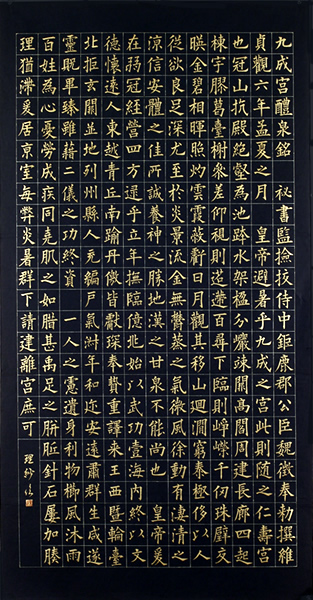 九成宮醴泉銘 秘書監撿挍侍中鉅鹿郡公臣魏徵奉勅撰維
貞觀六年孟夏之月 皇帝避暑乎九成之宮此則随之仁壽宮
也冠山抗殿絕壑為池跨水架楹分巖竦闕高閣周建長廊四起
棟宇膠葛臺榭參差仰視則迢遰百尋下臨則崢嶸千仞珠璧交
暎金碧相暉照灼雲霞蔽虧日月觀其移山迴澗窮泰極侈以人
從欲良足深尤至於炎景流金無鬱蒸之氣微風徐動有淒清之
涼信安體之佳所誠養神之勝地漢之甘泉不能尚也 皇帝爰
在弱冠經營四方逮乎立年撫臨億兆始以武功壹海內終以文
德懷遠人東越青丘南踰丹徼皆獻琛奉贄重譯來王西暨輪臺
北拒玄闕並地列州縣人充編戶氣淑年和迩安遠肅群生咸遂
靈貺畢臻雖藉二儀之功終資 一人之慮遺身利物櫛風沐雨
百姓為心憂勞成疾同堯肌之如腊甚禹足之胼胝針石屢加腠
理猶滯爰居京室每弊炎暑群下請建離宮庶可